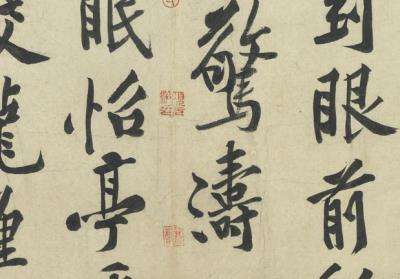 到眼前
驚濤
眠怡亭
龍纏